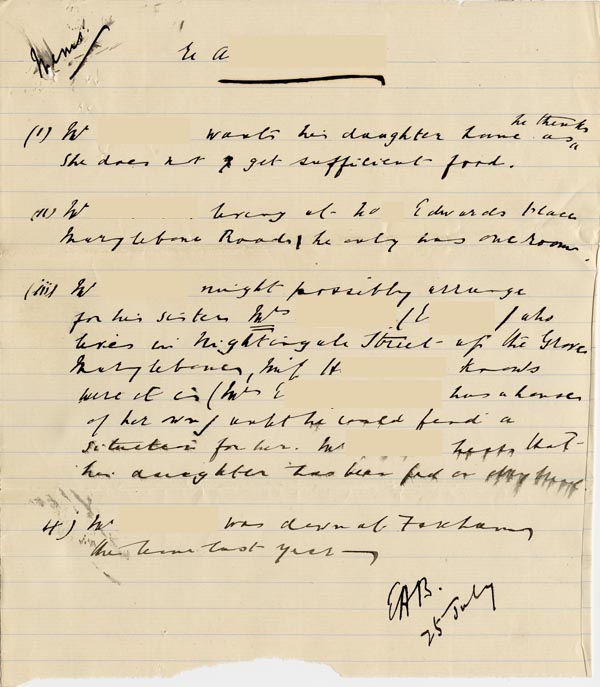 Memo.
Re A
he thinks
(i) Mr wants his daughter home as
she does not get sufficient food.
(ii) Mr living at No Edwards Place
Marylebone Road, he only has one room.
(iii) Mr might possibly arrange
for his sister Mrs (E ) who
lives in Nightingale Street off the Grove
Marylebone, Miss H knows
were it is (Mrs E has a house
of her own) until he could find a
situation for her. Mr that
his daughter has been fed on
4) Mr was down at Foxham
the time last year
EAB.
25 July